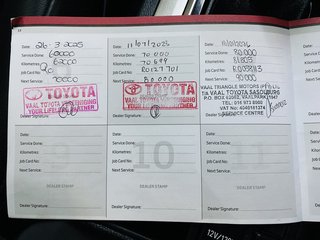 Date: 26 3 2025
Service Done: 60000
Kilometres: 62000
Job Card No:
Next Service: 70000
TOYOTA
VAAL TOYOTA VEREENIGING
YOUR LIFELONG PARTNER
Dealer Signature:
Date: 11/07/2025
Service Done: 70.000
Kilometres: 70.699
Job Card No: R0127701
Next Service: 80.000
TOYOTA
VAAL TOYOTA VEREENIGING
YOUR LIFELONG PARTNER
Dealer Signature:
Date:
Service Done: 80.000
Kilometres:
Job Card No:
Next Service: 90.000
VAAL TRIANGLE MOTORS (PTY) LTD
T/A VAAL TOYOTA SASOLBURG
SERVICE CENTRE
Dealer Signature:
Date:
Service Done:
Kilometres:
Job Card No:
Next Service:
DEALER STAMP
Dealer Signature:
10
Date:
Service Done:
Kilometres:
Job Card No:
Next Service:
DEALER STAMP
Dealer Signature:
Date:
Service Done:
Kilometres:
Job Card No:
Next Service:
DEALER STAMP
Dealer Signature: